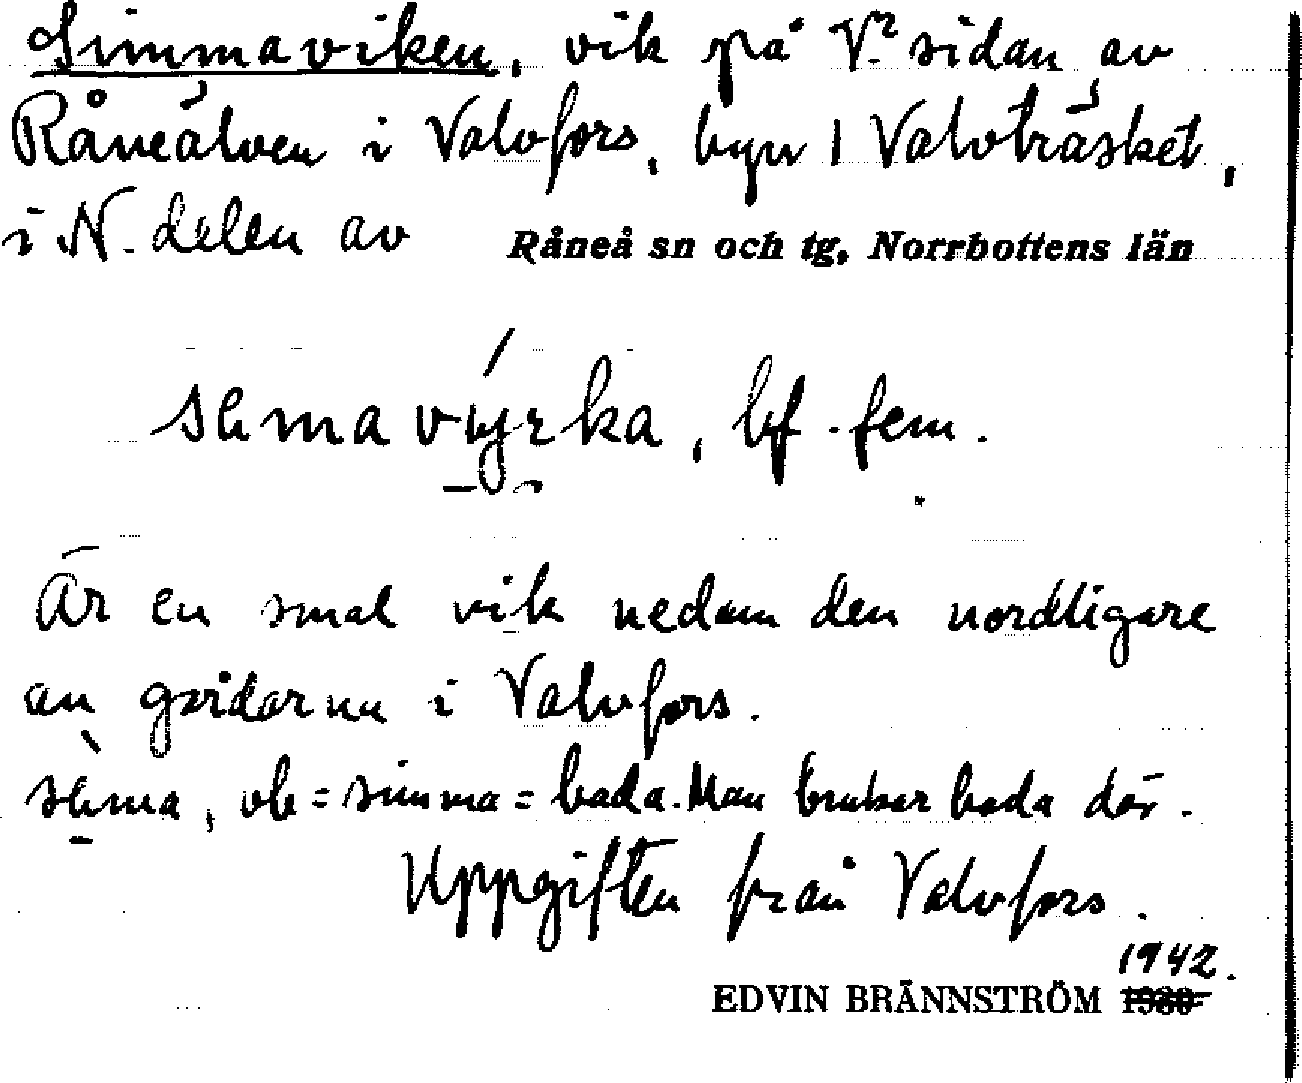 Simmaviken, vik på V. sidan av
Råneälven i Valvfors, byn i Valvträsket,
i N. delen av Råneå sn och tg, Norrbottens län
bf. fem.
Är en smal vik nedom den nordligare
av gårdarna i Valvfors.
vb = simma = bada. Man brukar bada där.
Uppgiften från Valvfors.
1942.
EDVIN BRÄNNSTRÖM 1930